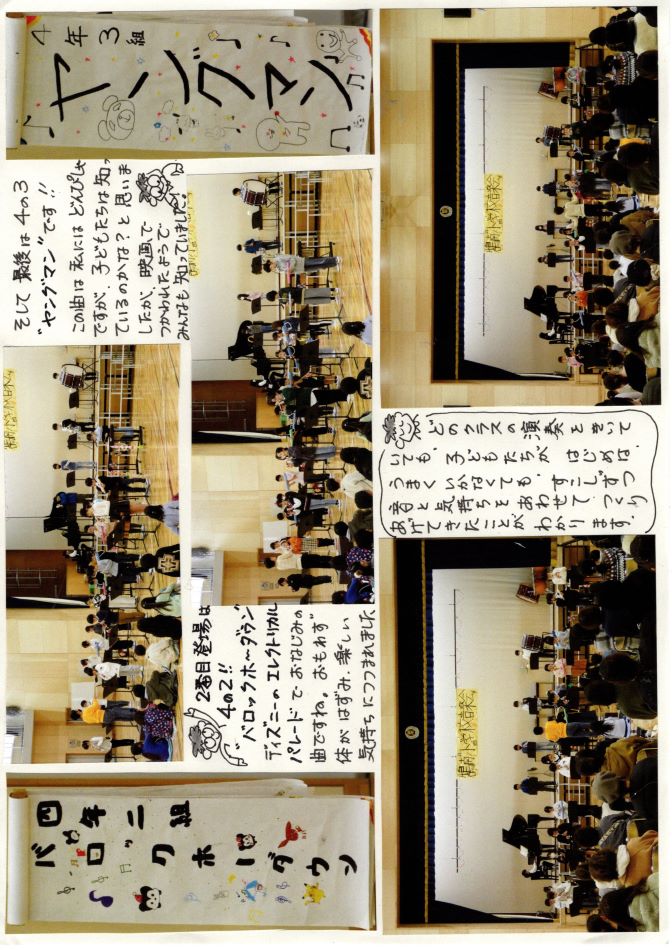 四年二組
バロックホーダウン
2番目登場は
4の2!!
"バロックホーダウン"
ディズニーのエレクトリカル
パレードでおなじみの
曲ですね。おもわず
体がはずみ、楽しい
気持ちにつつまれました
4年3組
ヤングマン
そして最後は4の3
"ヤングマン"です!!
この曲は私にはどんぴしゃ
ですが、子どもたちは知っ
ているのかな?と思いま
したが、映画で
つかわれたようで
みんなも知っていました!
どのクラスの演奏をきいて
いても、子どもたちが、はじめは、
うまくいかなくても、すこしずつ
音と気持ちをあわせて、つくり
あげてきたことがわかります。